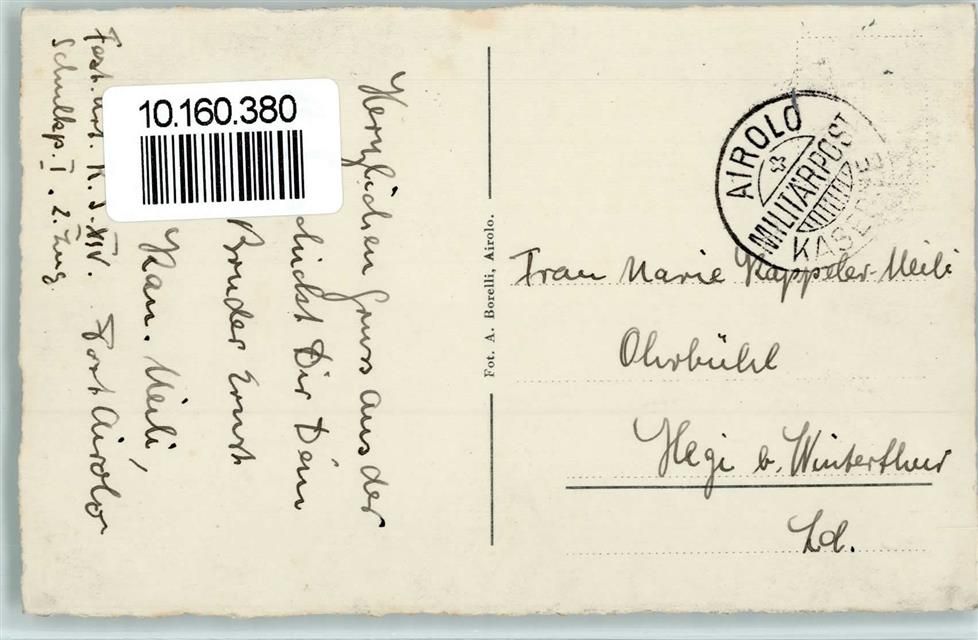 10.160.380
Herzlichen Gruss aus der
Dir Dein
Bruder Ernst
Kan. Meili,
Fort Airolo
Schulkp. I. 2. Zug
Fot. A. Borelli, Airolo.
AIROLO
MILITÄRPOST
KASERNE
Frau Marie Kappeler-Meili
Ohrbühl
Hegi b. Winterthur
Zd.